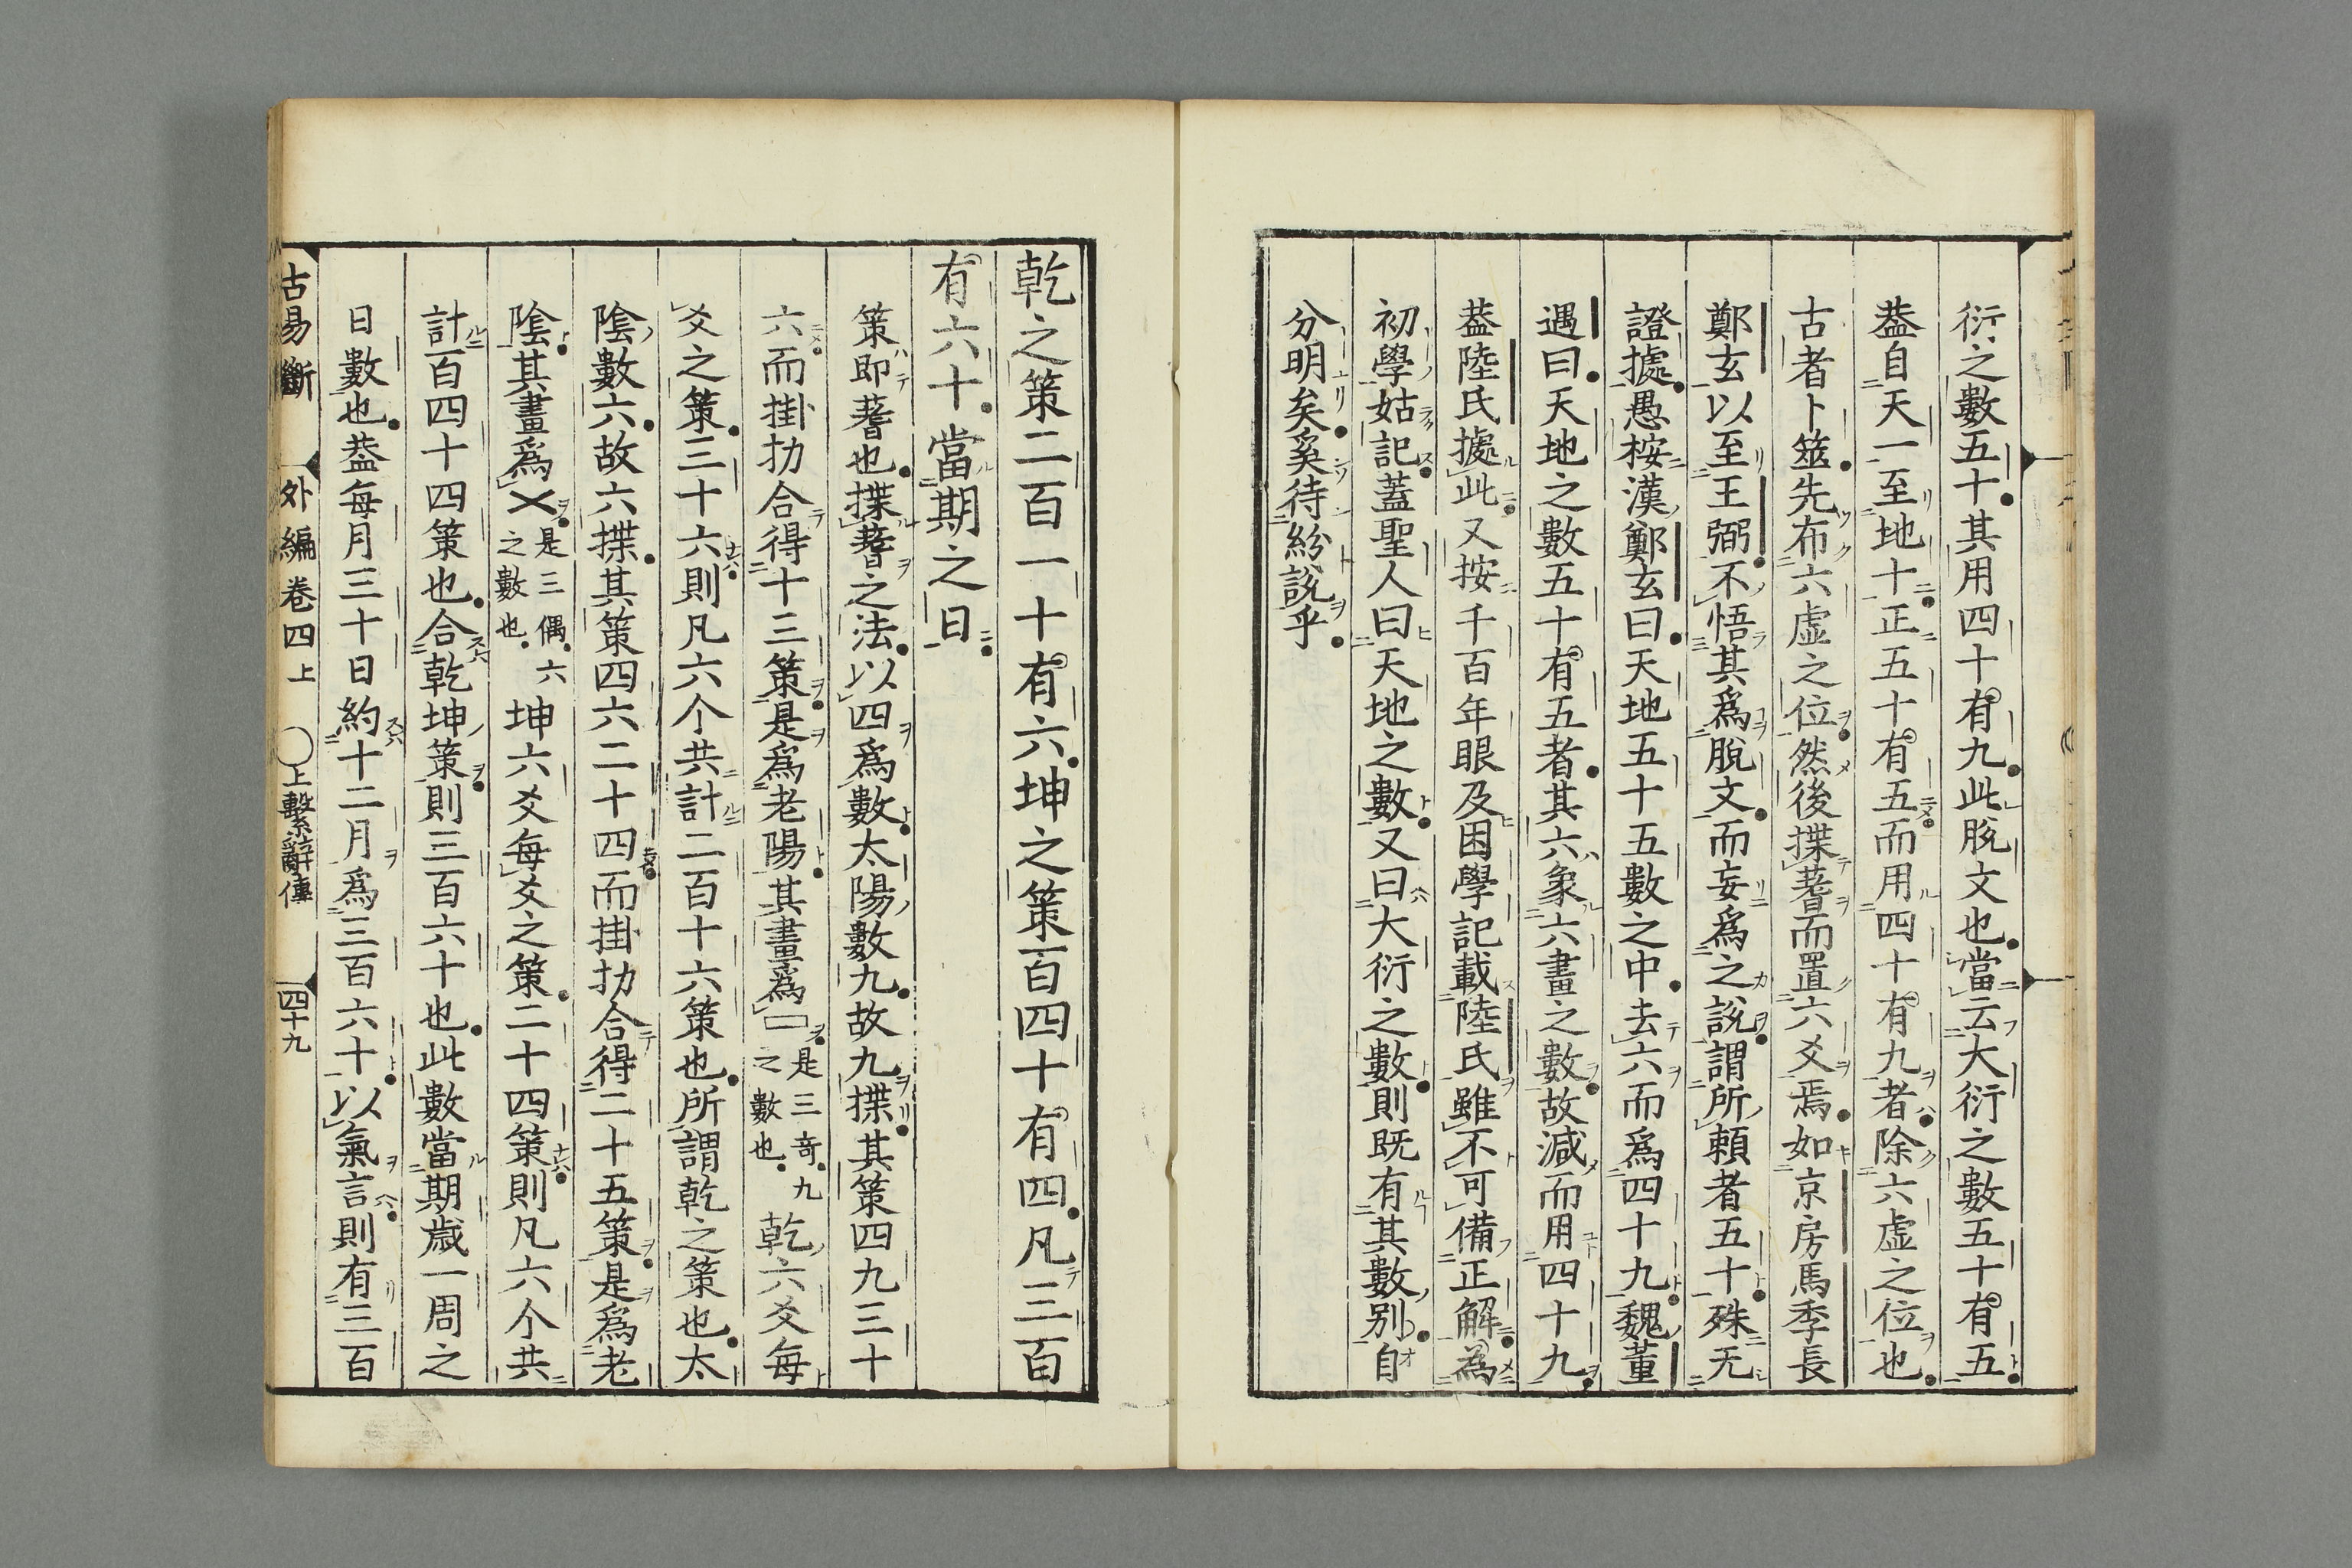 衍之數五十其用四十有九此脫文也當云大衍之數五十有五
葢自天一至地十正五十有五而用四十有九者除六虛之位也
古者卜筮先布六虛之位然後揲蓍而置六爻焉如京房馬季長
鄭玄以至王弼不悟其爲脫文而妄爲之說謂所賴者五十殊无
證據愚桉漢鄭玄曰天地五十五數之中去六而爲四十九魏董
遇曰天地之數五十有五者其六象六畫之數故減而用四十九
葢陸氏據此又按千百年眼及困學記載陸氏雖不可備正解為
初學姑記蓋聖人曰天地之數又曰大衍之數則既有其數別自
分明矣奚待紛說乎
乾之策二百一十有六坤之策百四十有四凡三百
有六十當期之日
策即蓍也揲蓍之法以四爲數太陽數九故九揲其策四九三十
六而掛扐合得十三策是爲老陽其畫爲□是三奇九之數也乾六爻每
爻之策三十六則凡六个共計二百十六策也所謂乾之策也太
陰數六故六揲其策四六二十四而掛扐合得二十五策是爲老
陰其畫爲乂是三偶六之數也坤六爻每爻之策二十四策則凡六个共
計百四十四策也合乾坤策則三百六十也此數當期歲一周之
日數也葢每月三十日約十二月爲三百六十以氣言則有三百
古易斷 外編卷四上 ○上繫辭傳 四十九